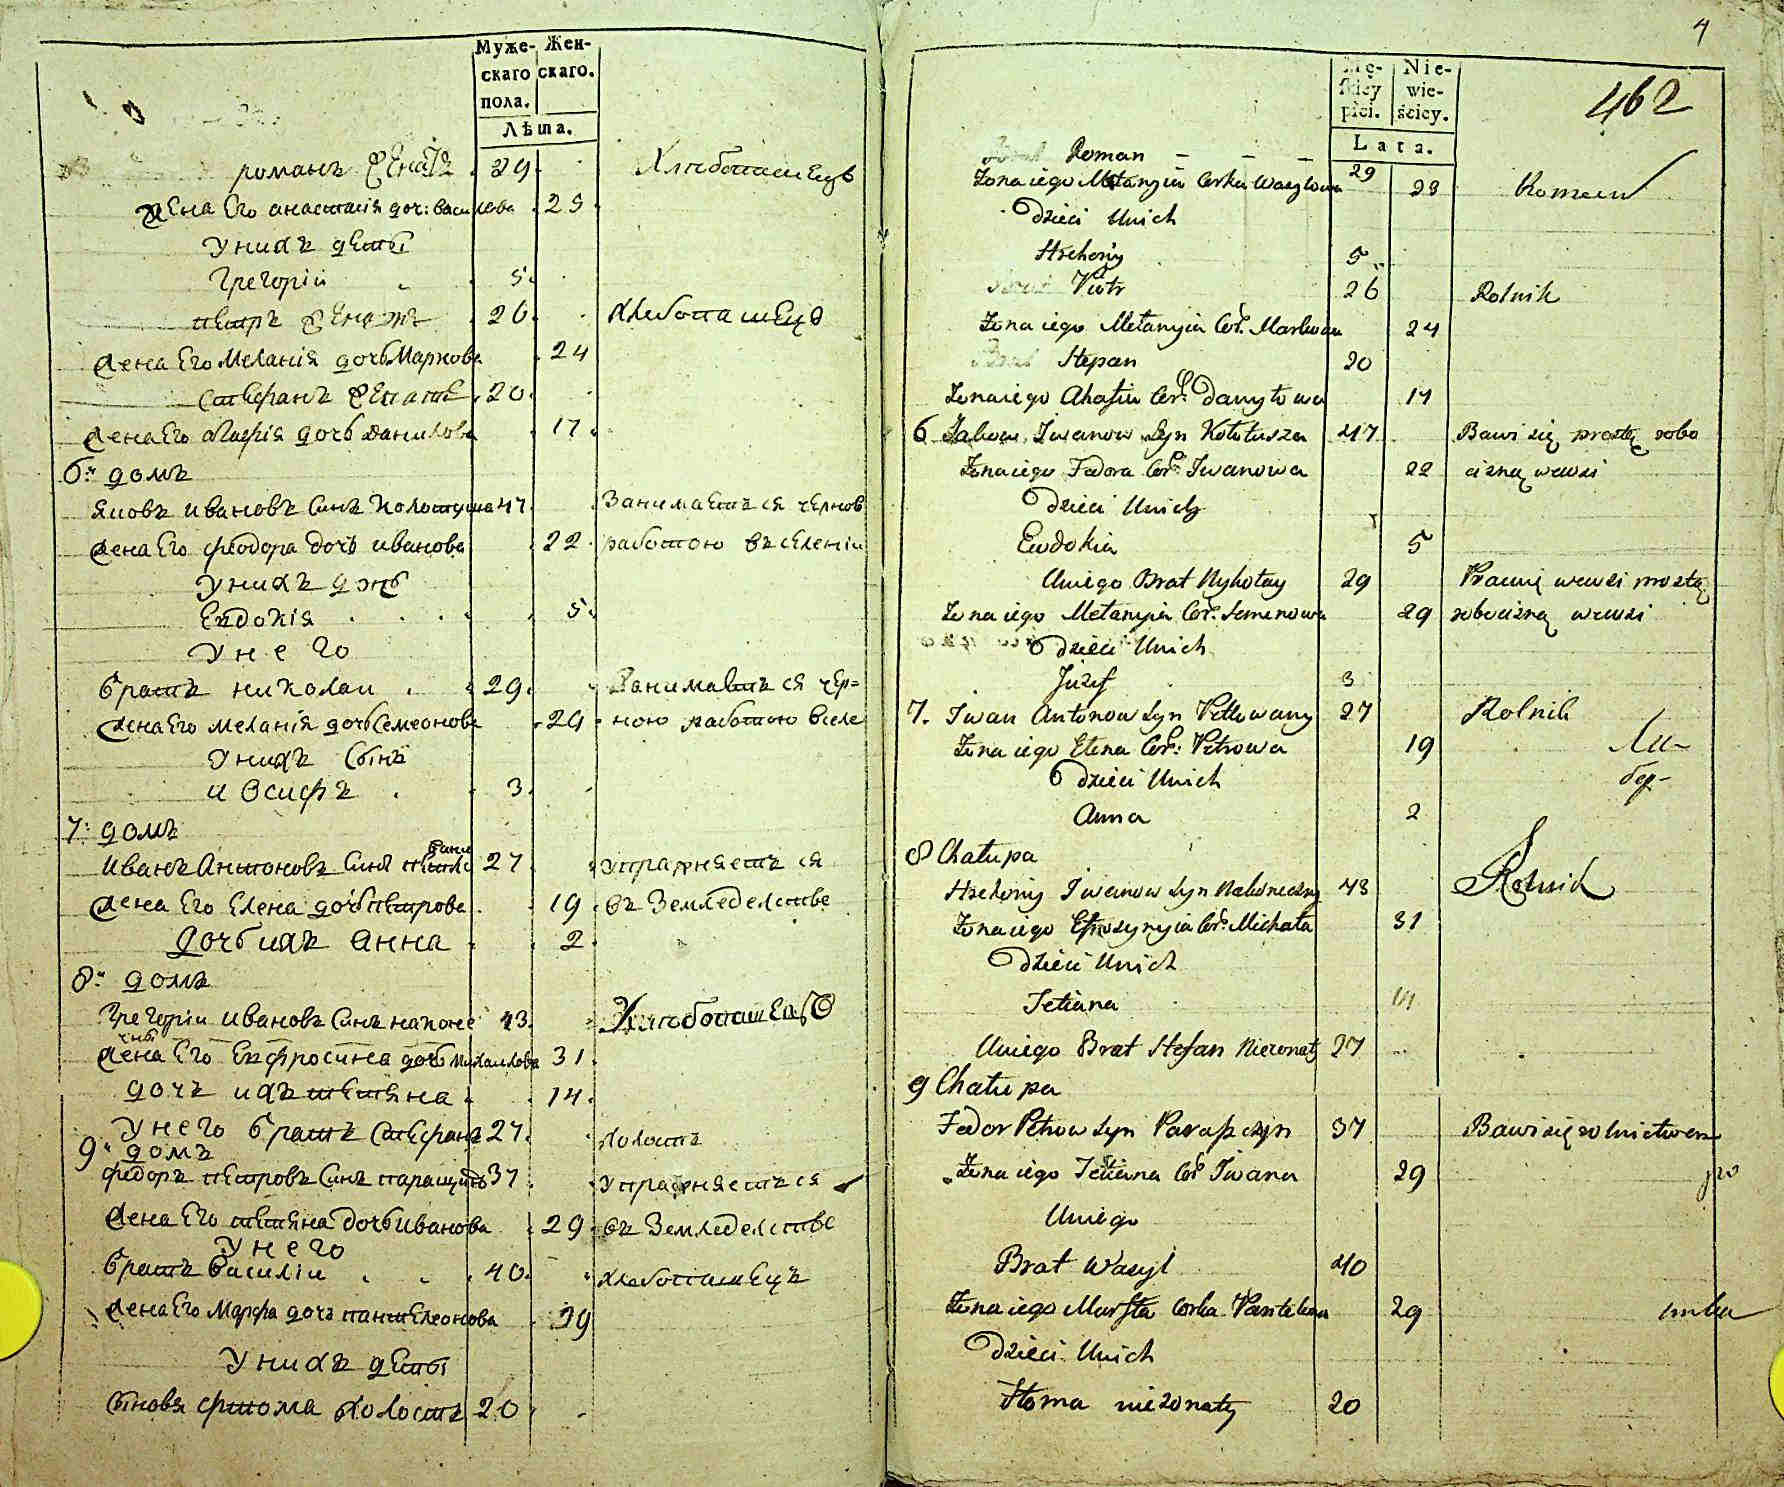 Муже- Жен-
скаго скаго.
пола.
Лѣта.
романъ женатъ 29 Хлѣбопашецъ
жена Его анастасія доч: васильова 23
У нихъ дети
Грегоріи 5
петръ женатъ 26 хлебопашецъ
жена Его Меланія дочь Маркова 24
стефанъ женатъ 20
жена Его агафія дочь данилова 17
6й домъ
яковъ ивановъ синъ Колотуша 47 Занимаетъся чернов
жена Его феодора дочъ иванова 22 работою въ селеніи
У нихъ дочь
Евдокія 5
У него
братъ николаи 29 Занимаетъся чер=
жена Его меланія дочь Семеонова 29 ною работою в селе
У нихъ сынъ
иосифъ 3
7: домъ
Иванъ Антоновъ синъ петло 27 упражняетъся
вани
жена Его Елена дочь петрова 19 въ Земледелстве
дочь ихъ анна 2
8й домъ
Грегоріи ивановъ синъ наконе 43 Хлѣбопашецъ
чны
жена Его Ефросина дочь михаилова 31
дочъ ихъ тетяна 14
У него братъ стефанъ 27 холостъ
9й домъ
федоръ петровъ синъ паращинъ 37 упражняетъся
жена Его тетяна дочь иванова 29 въ Земледелстве
У него
братъ василіи 40 хлебопашецъ
жена Его Марфа дочъ пантелеонова 39
У нихъ дети
сыновя фтома холостъ 20
4
Mę- Nie-
skiey wie-
płci. ściey.
Lata.
462
Brat Roman 29
Żona iego Mełanyia Corka Wasylowa 23 Roman
Dzieci Unich
Hrehory 5
Brat Piotr 26 Rolnik
Żona iego Mełanyia Cor. Markowa 24
Brat Stepan 20
Żona iego Ahafia Cor. Danyłowa 17
6 Jakow Iwanow Syn Kołotusza 47 Bawi się prostą robo
Żona iego Fedora Cor. Iwanowa 22 cizną wewsi
Dzieci Unich
Ewdokia 5
Uniego Brat Mykołay 29 Pracuię wewsi prostą
Żona iego Mełanyia Cor. Semenowa 29 robocizną wewsi
Dzieci Unich
Józef 3
7. Iwan Antonow Syn Petłowany 27 Rolnik
Żona iego Elena Cor: Petrowa 19
Ли-
бер-
Dzieci Unich
Anna 2
8 Chałupa
Hrehory Iwanow Syn Nakoneczny 43 Rolnik
Żona iego Efrosynyia Cor. Michała 31
Dzieci Unich
Tetiana 14
Uniego Brat Stefan Nieżonaty 27
9 Chałupa
Fedor Petrow Syn Parapczyn 37 Bawi się rolnictwem
Żona iego Tetiana Cor Iwana 29
Uniego
Brat Wasyl 40
Żona iego Marfta Corka Panteleona 29
Dzieci Unich
Ftoma nieżonaty 20